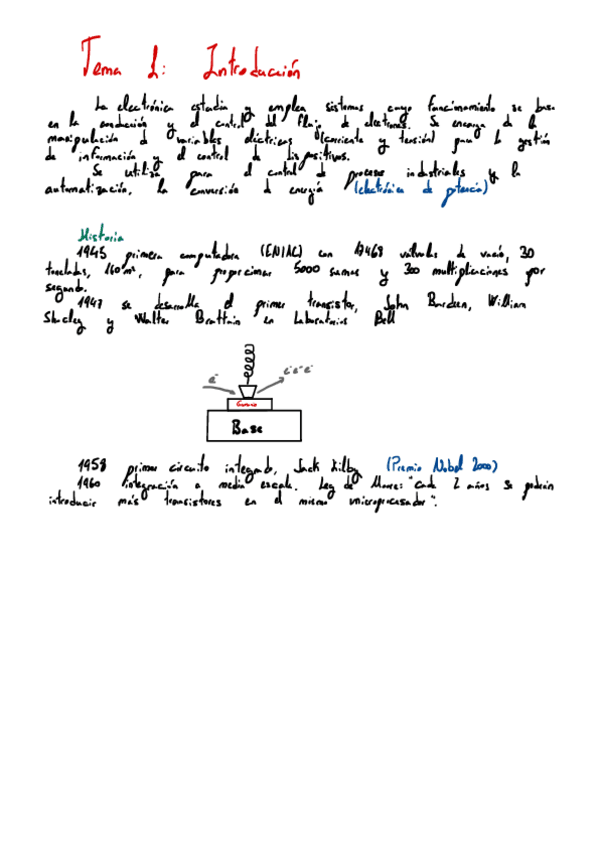 Tema 1: Introducción
La electrónica estudia y emplea sistemas cuyo funcionamiento se basa
en la conducción y el control del flujo de electrones. Se encarga de la
manipulación de variables eléctricas (corriente y tensión) para la gestión
de información y el control de dispositivos.
Se utiliza para el control de procesos industriales y la
automatización, la conversión de energía (electrónica de potencia)
Historia
1945 primera computadora (ENIAC) con 17468 válvulas de vacío, 30
toneladas, 160m², para proporcionar 5000 sumas y 300 multiplicaciones por
segundo.
1947 se desarrolla el primer transistor, John Bardeen, William
Shockley y Walter Brattain en Laboratorios Bell
e⁻
e⁻e⁻e⁻
Base
1958 primer circuito integrado, Jack Kilby (Premio Nobel 2000)
1960 integración a media escala. Ley de Moore: "Cada 2 años se podrán
introducir más transistores en el mismo microprocesador".